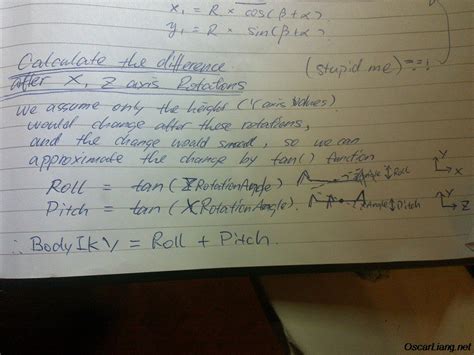 x₁ = R × cos(β+α).
y₁ = R × sin(β+α).
Calculate the difference (stupid me) ==!
after X, Z axis Rotations
We assume only the height (Y axis values)
would change after these rotations,
and the change would small, so we can
approximate the change by tan() function
Roll = tan(ZRotationAngle) Angle ↕ Roll Y X
Pitch = tan(XRotationAngle). Angle ↕ Pitch Y Z
∴ BodyIKY = Roll + Pitch.
OscarLiang.net